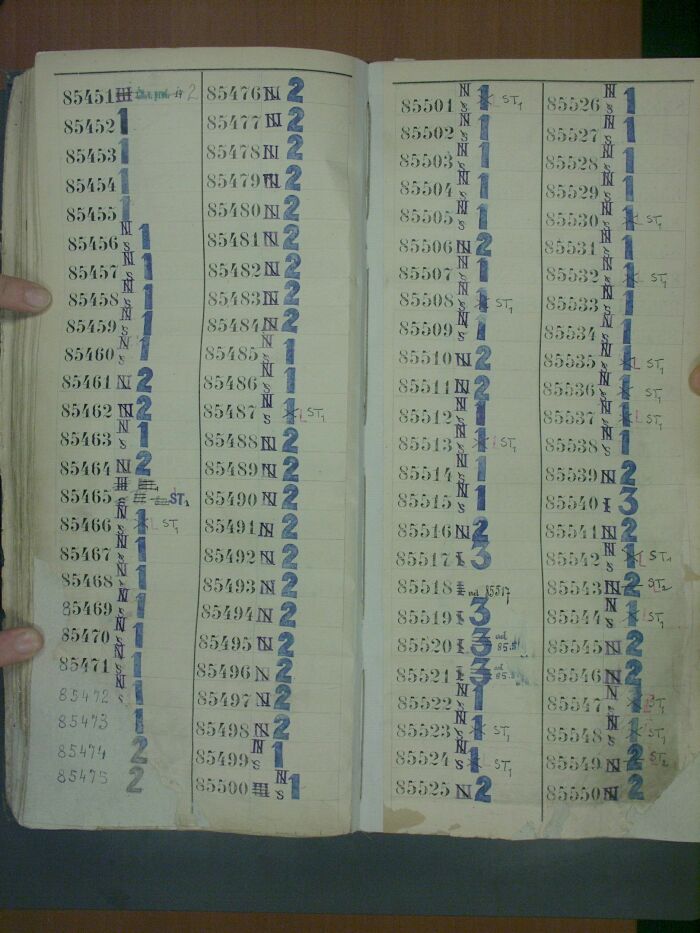 85451 2
85452 1
85453 1
85454 1
85455 1
85456 N s 1
85457 N s 1
85458 N s 1
85459 N s 1
85460 N s 1
85461 N 2
85462 N 2
85463 N s 1
85464 N 2
85465 ST1
85466 N s 1 L ST1
85467 N s 1
85468 N s 1
85469 N s 1
85470 N s 1
85471 N s 1
85472 N s 1
85473 1
85474 2
85475 2
85476 N 2
85477 N 2
85478 N 2
85479 N 2
85480 N 2
85481 N 2
85482 N 2
85483 N 2
85484 N 2
85485 N s 1
85486 N s 1
85487 N s 1 L ST1
85488 N 2
85489 N 2
85490 N 2
85491 N 2
85492 N 2
85493 N 2
85494 N 2
85495 N 2
85496 N 2
85497 N 2
85498 N 2
85499 N s 1
85500 N s 1
85501 N s 1 L ST1
85502 N s 1
85503 N s 1
85504 N s 1
85505 N s 1
85506 N 2
85507 N s 1
85508 N s 1 ST1
85509 N s 1
85510 N 2
85511 N 2
85512 N s 1
85513 N s 1 ST1
85514 N s 1
85515 N s 1
85516 N 2
85517 I 3
85518 I vel 85517
85519 I 3
85520 I 3 vel
85521 I 3 vel
85522 N s 1
85523 N s 1 ST1
85524 N s 1 ST1
85525 N 2
85526 N s 1
85527 N s 1
85528 N s 1
85529 N s 1
85530 N s 1 L ST1
85531 N s 1
85532 N s 1 ST1
85533 N s 1
85534 N s 1
85535 N s 1 L ST1
85536 N s 1 ST1
85537 N s 1 L ST1
85538 N s 1
85539 N 2
85540 I 3
85541 N 2
85542 N s 1 L ST1
85543 N 2 L ST2
85544 N s 1 ST1
85545 N 2
85546 N 2
85547 N s 1 ST1
85548 N s 1 ST1
85549 N 2 ST2
85550 N 2